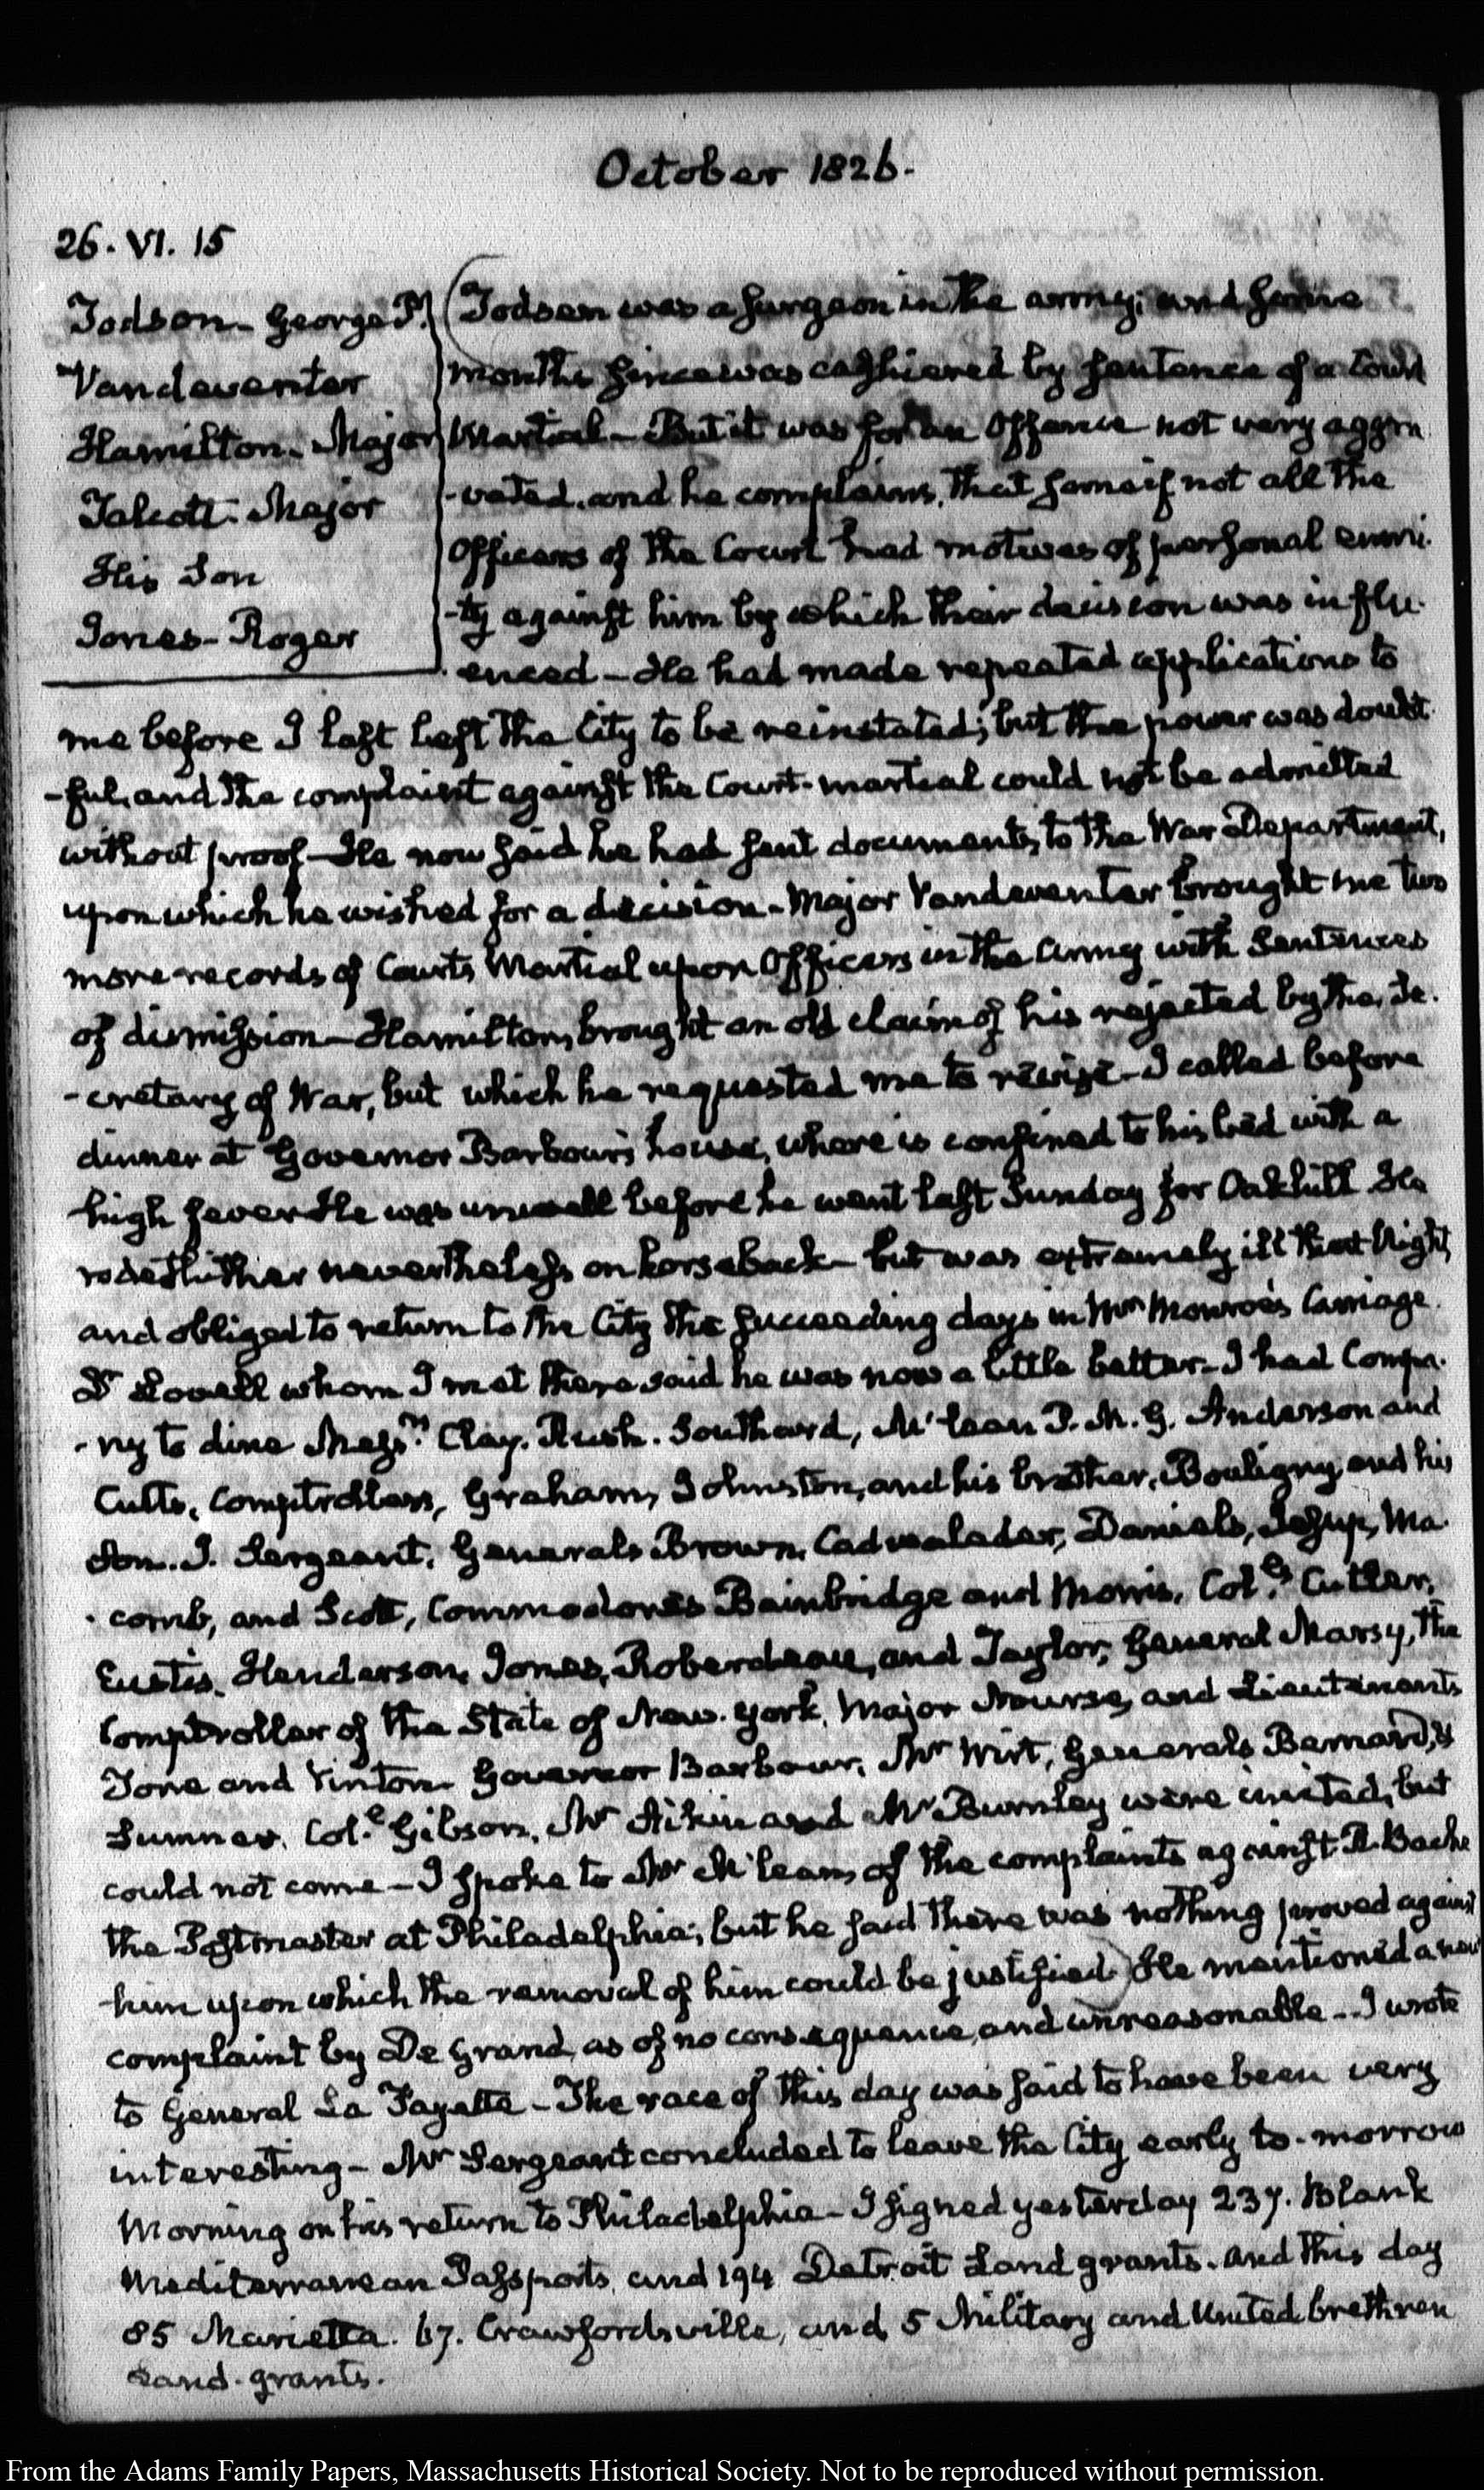 October 1826.
26. VI. 15
Todson. George P.
Vandeventer
Hamilton. Major
Talcott. Major
His Son
Jones. Roger
(Todson was a Surgeon in the army; and some
months since was cashiered by sentence of a Court
Martial — But it was for an Offence not very aggra
-vated, and he complains, that some if not all the
Officers of the Court had motives of personal enmi-
-ty against him by which their decision was influ-
enced — He had made repeated applications to
me before I last left the City to be reinstated; but the power was doubt
-ful, and the complaint against the Court-martial could not be admitted
without proof — He now said he had sent documents, to the War Department,
upon which he wished for a decision — Major Vandeventer brought me two
more records of Courts Martial upon Officers in the Army with Sentences
of dismission — Hamilton, brought an old claim of his rejected by the Se-
-cretary of War, but which he requested me to revise — I called before
dinner at Governor Barbour's house, where is confined to his bed with a
high fever He was unwell before he went last Sunday for Oakhill He
rode thither nevertheless on horseback — but was extremely ill that Night,
and obliged to return to the City the succeeding days in Mrs Monroe's Carriage.
Dr Lovell whom I met there said he was now a little better — I had Compa-
-ny to dine Messrs Clay. Rush. Southard, McLean P. M. G. Anderson and
Cutts, Comptrollers, Graham, Johnston, and his brother, Bouligny and his
Son. J. Sergeant, Generals Brown, Cadwalader, Daniels, Jesup, Ma-
-comb, and Scott, Commodores Bainbridge and Morris, Cols Cutler,
Eustis. Henderson, Jones, Roberdeau, and Taylor, General Marsy, the
Comptroller of the State of New-York, Major Nourse, and Lieutenants
Tone and Vinton — Governor Barbour, Mr Wirt, Generals Bernard, &
Sumner, Col. Gibson, Mr Aikin and Mr Burnley were invited, but
could not come — I spoke to Mr McLean, of the complaints against R. Bache
the Postmaster at Philadelphia; but he said there was nothing proved against
him upon which the removal of him could be justified) He mentioned a new
complaint by De Grand, as of no consequence, and unreasonable — I wrote
to General La Fayette — The race of this day was said to have been very
interesting — Mr Sergeant concluded to leave the City early to-morrow
Morning on his return to Philadelphia — I signed yesterday 237. Blank
Mediterranean Passports, and 194 Detroit Land grants. and this day
85 Marietta. 67. Crawfordsville, and 5 Military and United brethren
Land-grants.
From the Adams Family Papers, Massachusetts Historical Society. Not to be reproduced without permission.